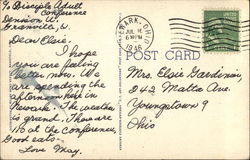 To Disciple Adult
Conference
Denison U.
Granville, O.
Dear Elsie,
I hope
you are feeling
better now. We
are spending the
afternoon here in
Newark. The weather
is grand. There are
at the conference,
Good eats.
Love May.
NEWARK, OHIO
JUL 16
6 PM
1946
POST CARD
Mrs. Elsie Gardiner
242 Mattie Ave.
Youngstown 9
Ohio